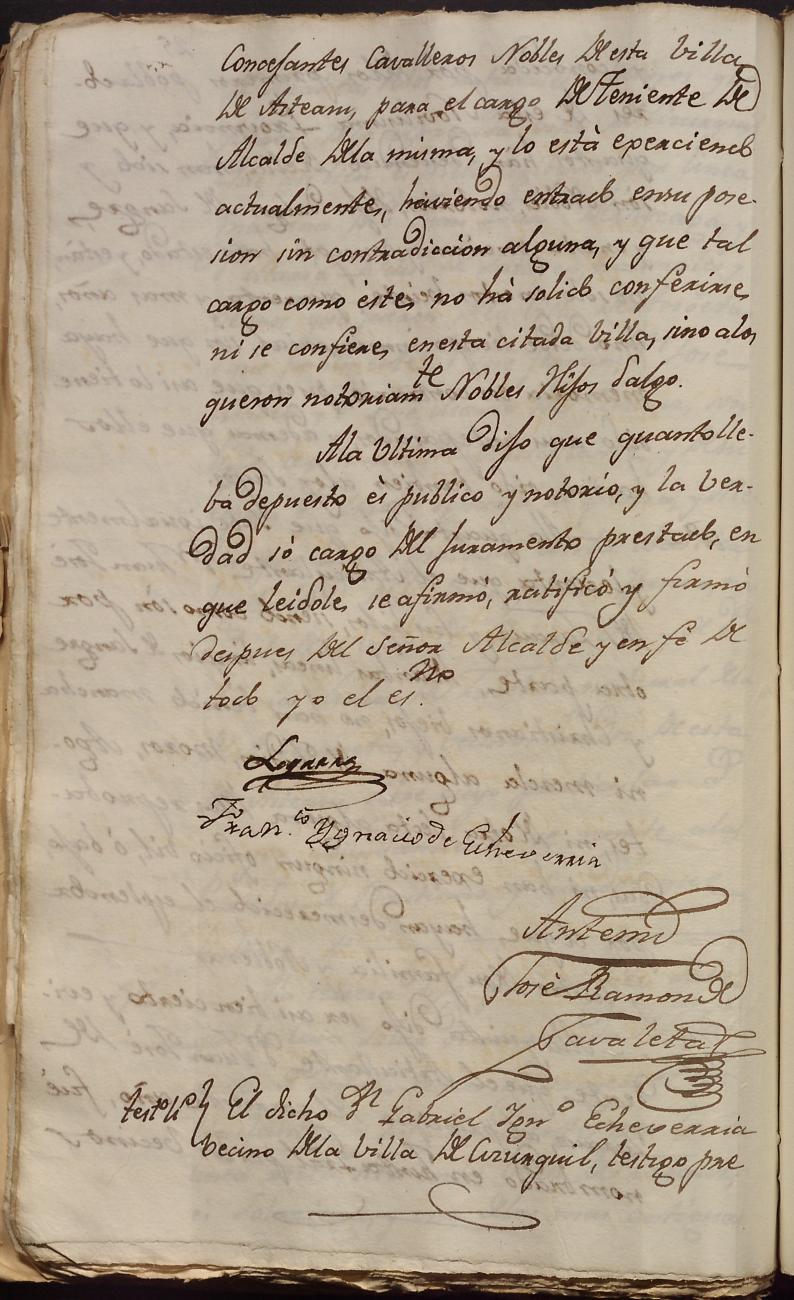 Concejantes Cavalleros Nobles de esta Villa
de Asteasu, para el cargo de Teniente de
Alcalde de la misma, y lo està exerciendo
actualmente, haviendo entrado en su pose-
sion sin contradiccion alguna, y que tal
cargo como èste no hà solido conferirse
ni se confiere en esta citada Villa, sino a los
que son notoriam.te Nobles Hijos dalgo.
A la Ultima Dijo que quanto lle-
ba depuesto ès publico y notorio, y la ver-
dad sò cargo del juramento prestado, en
que leidole se afirmó, ratificó y firmò
despues del Señor Alcalde y en fè de
todo yo el es.no
Fran.co Ygnacio de Echeverria
Antemi
Josè Ramon de
Zavaleta
test.o 11.o El dicho Dn Gabriel Ign.o Echeverria
vecino de la Villa de Cizurquil, testigo pre